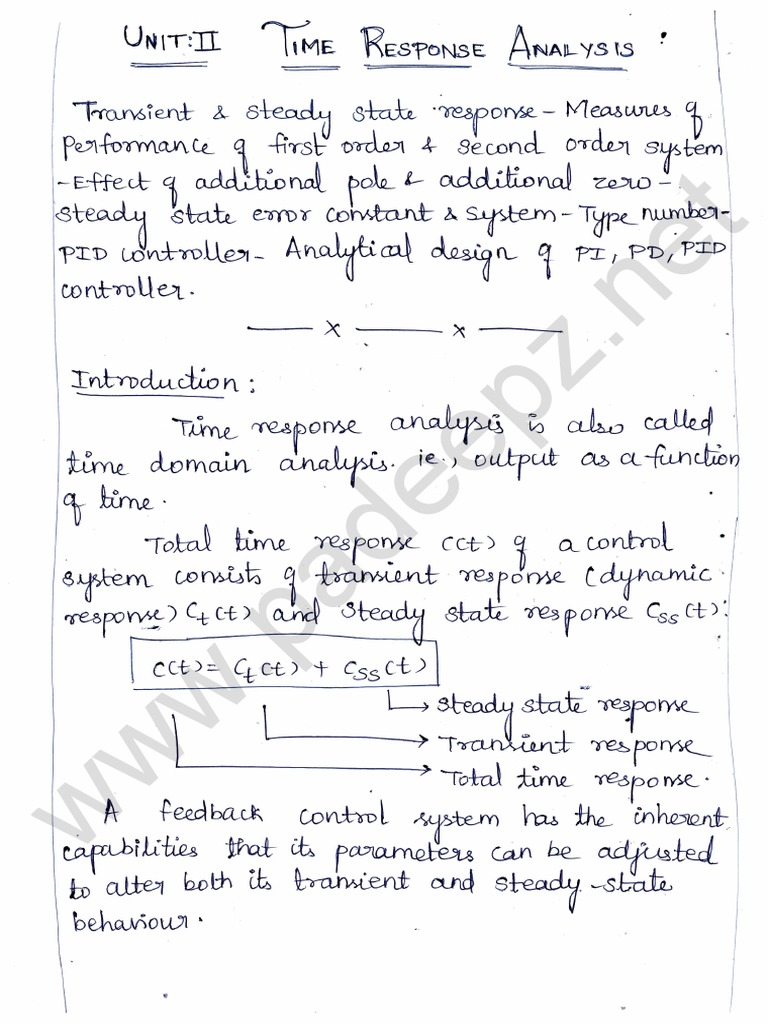 UNIT:II TIME RESPONSE ANALYSIS :
Transient & steady state response - Measures of
Performance of first order & second order system
- Effect of additional pole & additional zero -
steady state error constant & System - Type number-
PID controller - Analytical design of PI, PD, PID
controller.
x x
Introduction :
Time response analysis is also called
time domain analysis. ie., output as a function
of time.
Total time response c(t) of a control
system consists of transient response (dynamic
response) Ct(t) and steady state response Css(t).
c(t) = Ct(t) + Css(t)
Steady state response
Transient response
Total time response.
A feedback control system has the inherent
capabilities that its parameters can be adjusted
to alter both its transient and steady-state
behaviour.
www.padeepz.net